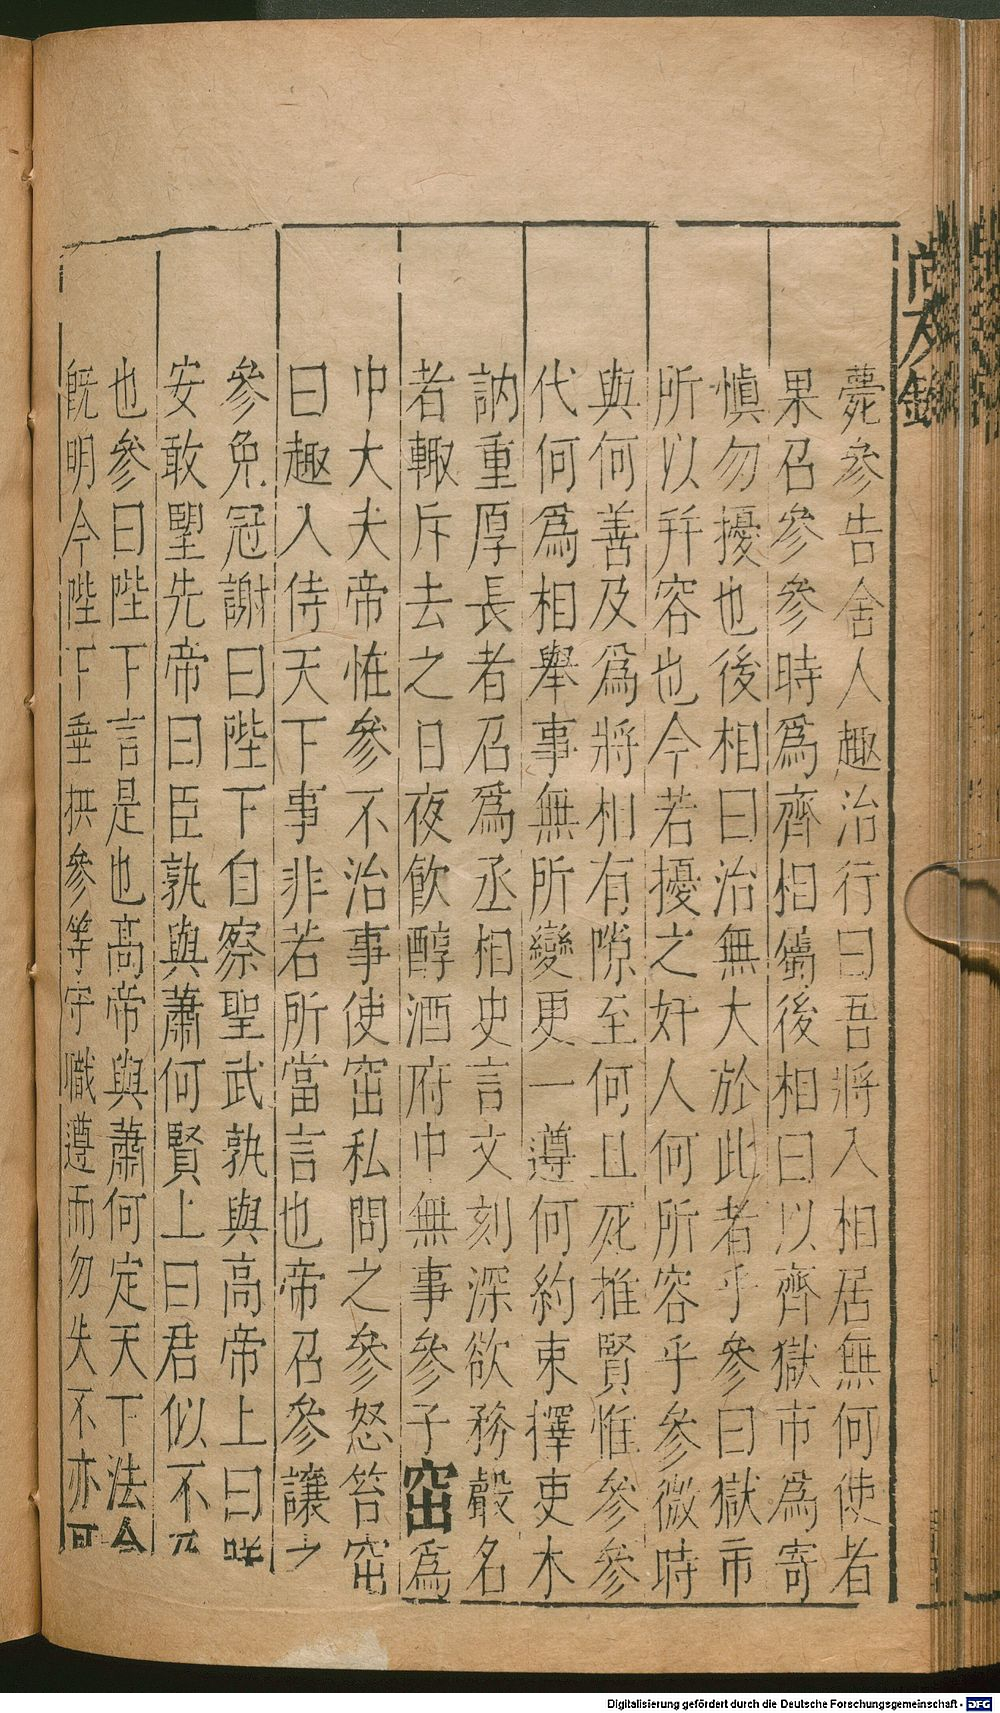 薨參告舍人趣治行曰吾將入相居無何使者
果召參參時爲齊相屬後相曰以齊獄市爲寄
愼勿擾也後相曰治無大於此者乎參曰獄市
所以幷容也今若擾之奸人何所容乎參微時
與何善及爲將相有隙至何且死推賢惟參參
代何爲相舉事無所變更一遵何約束擇吏木
訥重厚長者召爲丞相史言文刻深欲務聲名
者輙斥去之日夜飮醇酒府中無事參子窋爲
中大夫帝恠參不治事使窋私問之參怒笞窋
曰趣入侍天下事非若所當言也帝召參讓之
參免冠謝曰陛下自察聖武孰與高帝上曰
安敢朢先帝曰臣孰與蕭何賢上曰君似不
也參曰陛下言是也高帝與蕭何定天下法令
旣明今陛下垂拱參等守職遵而勿失不亦可
Digitalisierung gefördert durch die Deutsche Forschungsgemeinschaft - DFG